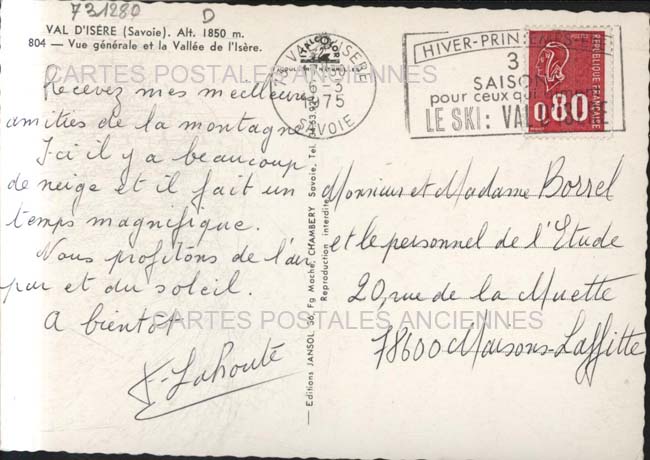 731280 D
VAL D'ISÈRE (Savoie). Alt. 1850 m.
804 — Vue générale et la Vallée de l'Isère.
CARTES POSTALES ANCIENNES
Recevez mes meilleures
amitiés de la montagne
Ici il y a beaucoup
de neige et il fait un
temps magnifique.
Nous profitons de l'air
pur et du soleil.
A bientôt
CARTES POSTALES ANCIENNES
F. Lahoute
Editions JANSOL, 36, Fg Maché, CHAMBERY Savoie, Tel.
Reproduction interdite
TRICOLOR
VAL D'ISERE
1975
SAVOIE
HIVER-PRINTEMPS
3
SAISON
pour ceux qui
LE SKI: VAL D'ISERE
REPUBLIQUE FRANÇAISE
0,80
Monsieur et Madame Borrel
et le personnel de l'Etude
20, rue de la Muette
78600 Maisons-Laffitte